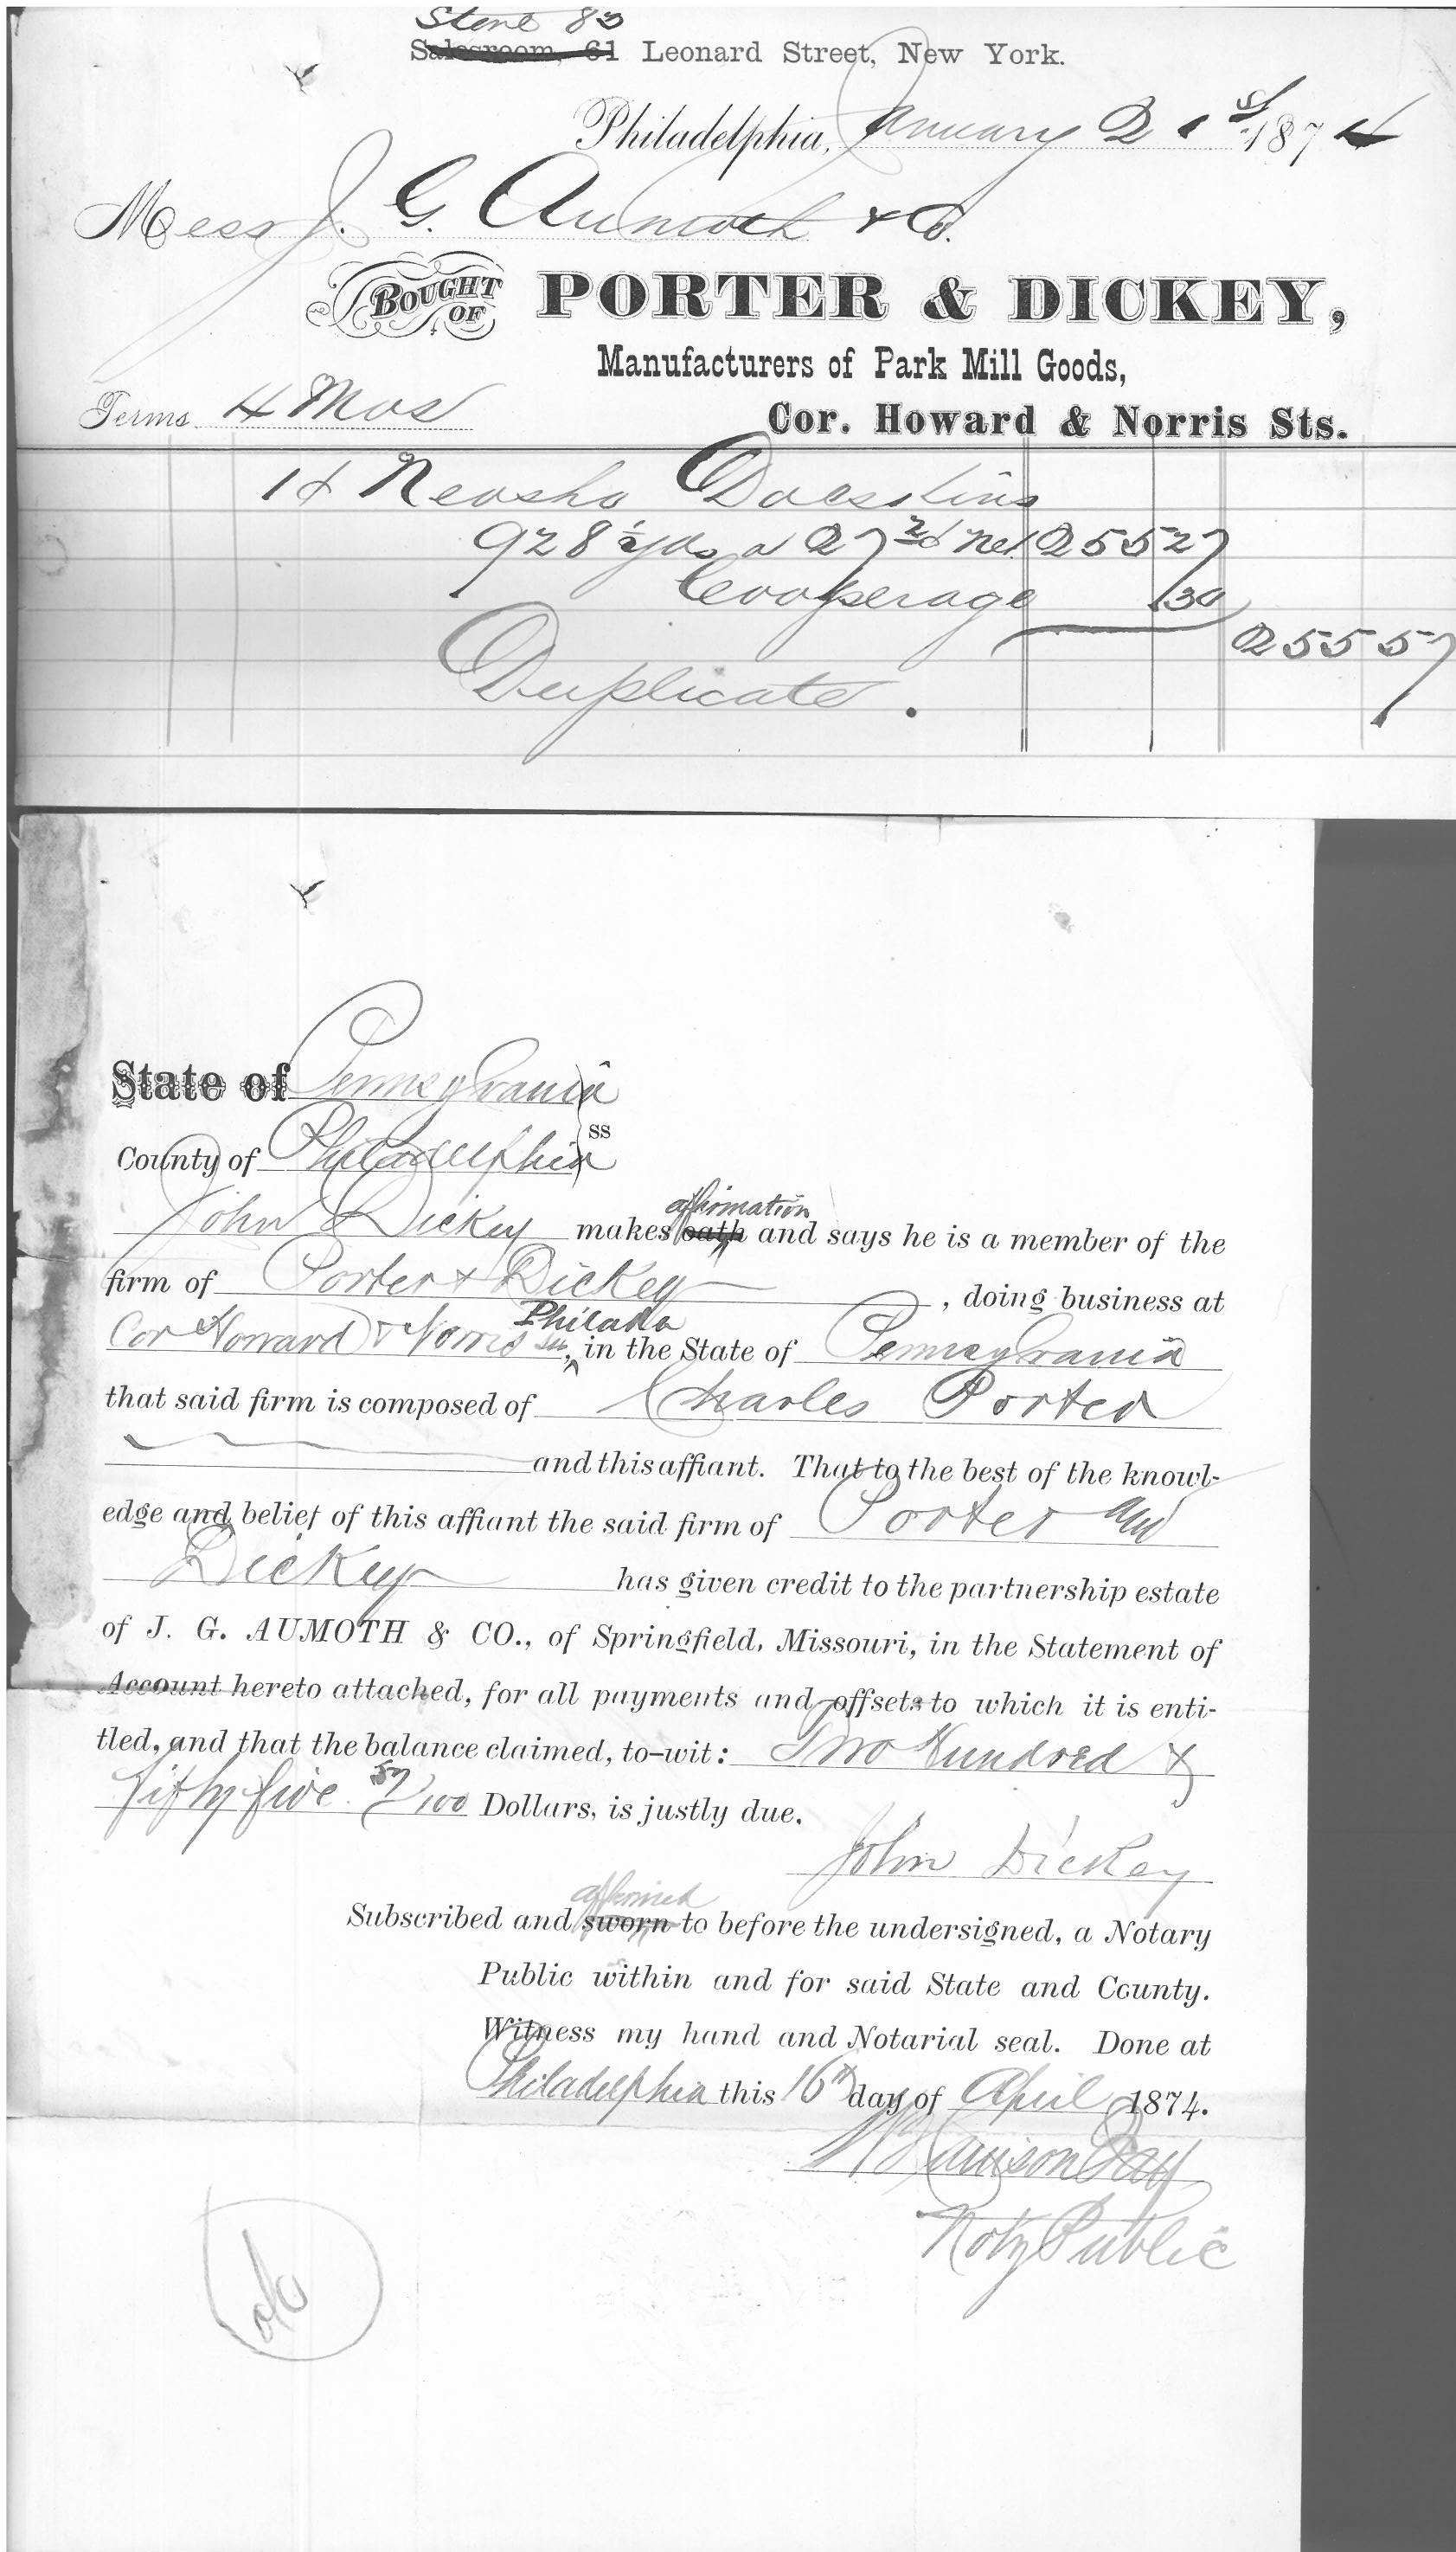 Store 83
Salesroom, 61 Leonard Street, New York.
Philadelphia, January 21st 1874
Mess J. G. Aumoth & Co.
BOUGHT OF PORTER & DICKEY,
Manufacturers of Park Mill Goods,
Terms 4 Mos
Cor. Howard & Norris Sts.
Neosho Doeskins
928 1/2 yds a 27 1/2 Net 255 27
Cooperage 30
255 57
Duplicate.
State of Pennsylvania
ss
County of Philadelphia
affirmation
John Dickey makes oath and says he is a member of the
firm of Porter & Dickey, doing business at
Philada
Cor Howard & Norris sts, in the State of Pennsylvania
that said firm is composed of Charles Porter
and this affiant. That to the best of the knowl-
edge and belief of this affiant the said firm of Porter and
Dickey has given credit to the partnership estate
of J. G. AUMOTH & CO., of Springfield, Missouri, in the Statement of
Account hereto attached, for all payments and offsets to which it is enti-
tled, and that the balance claimed, to-wit: Two Hundred &
fifty five 57/100 Dollars, is justly due.
John Dickey
affirmed
Subscribed and sworn to before the undersigned, a Notary
Public within and for said State and County.
Witness my hand and Notarial seal. Done at
Philadelphia this 16th day of April 1874.
Noty Public
ok